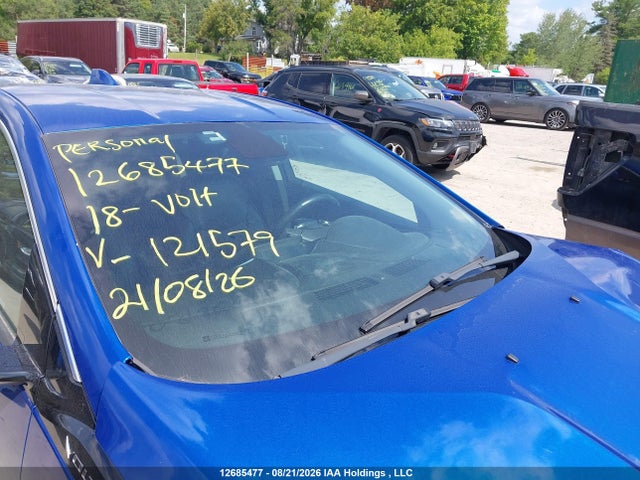 PERSONAL
12685477
18- VOLT
V- 121579
21/08/26
12685477 - 08/21/2026 IAA Holdings , LLC